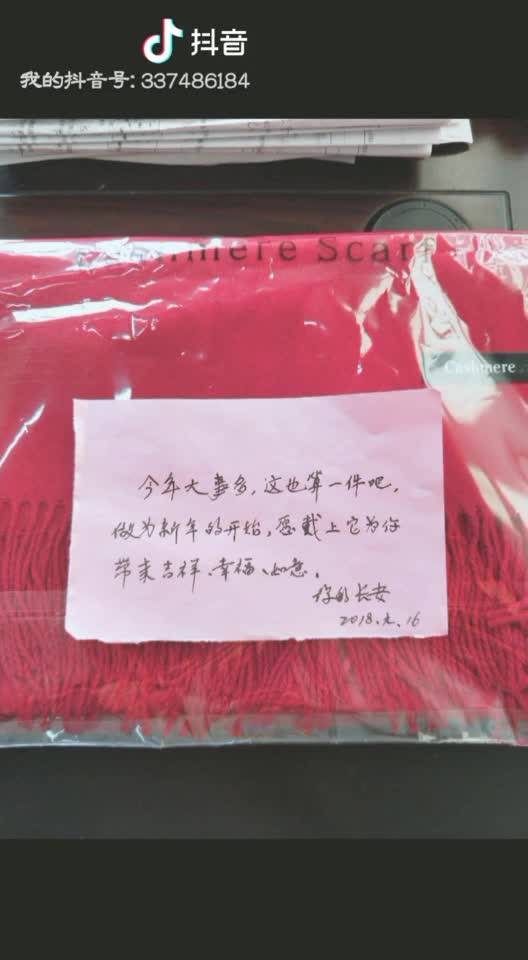 抖音
我的抖音号: 337486184
Cashmere Scarf
Cashmere
今年大事多,这也算一件吧,
做为新年的开始,愿戴上它为你
带来吉祥、幸福、如意。
你的长安
2018.2.16